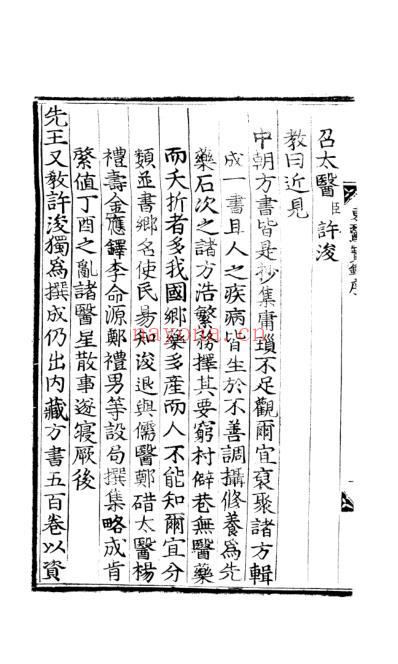 東醫寶鑑序
召太醫臣許浚
教曰近見
中朝方書皆是抄集庸瑣不足觀爾宜裒聚諸方輯
成一書且人之疾病皆生於不善調攝修養爲先
藥石次之諸方浩繁務擇其要窮村僻巷無醫藥
而夭折者多我國鄉藥多產而人不能知爾宜分
類並書鄉名使民易知浚退與儒醫鄭碏太醫楊
禮壽金應鐸李命源鄭禮男等設局撰集略成肯
綮値丁酉之亂諸醫星散事遂寢厥後
先王又敎許浚獨爲撰成仍出内藏方書五百卷以資
nayona.cn